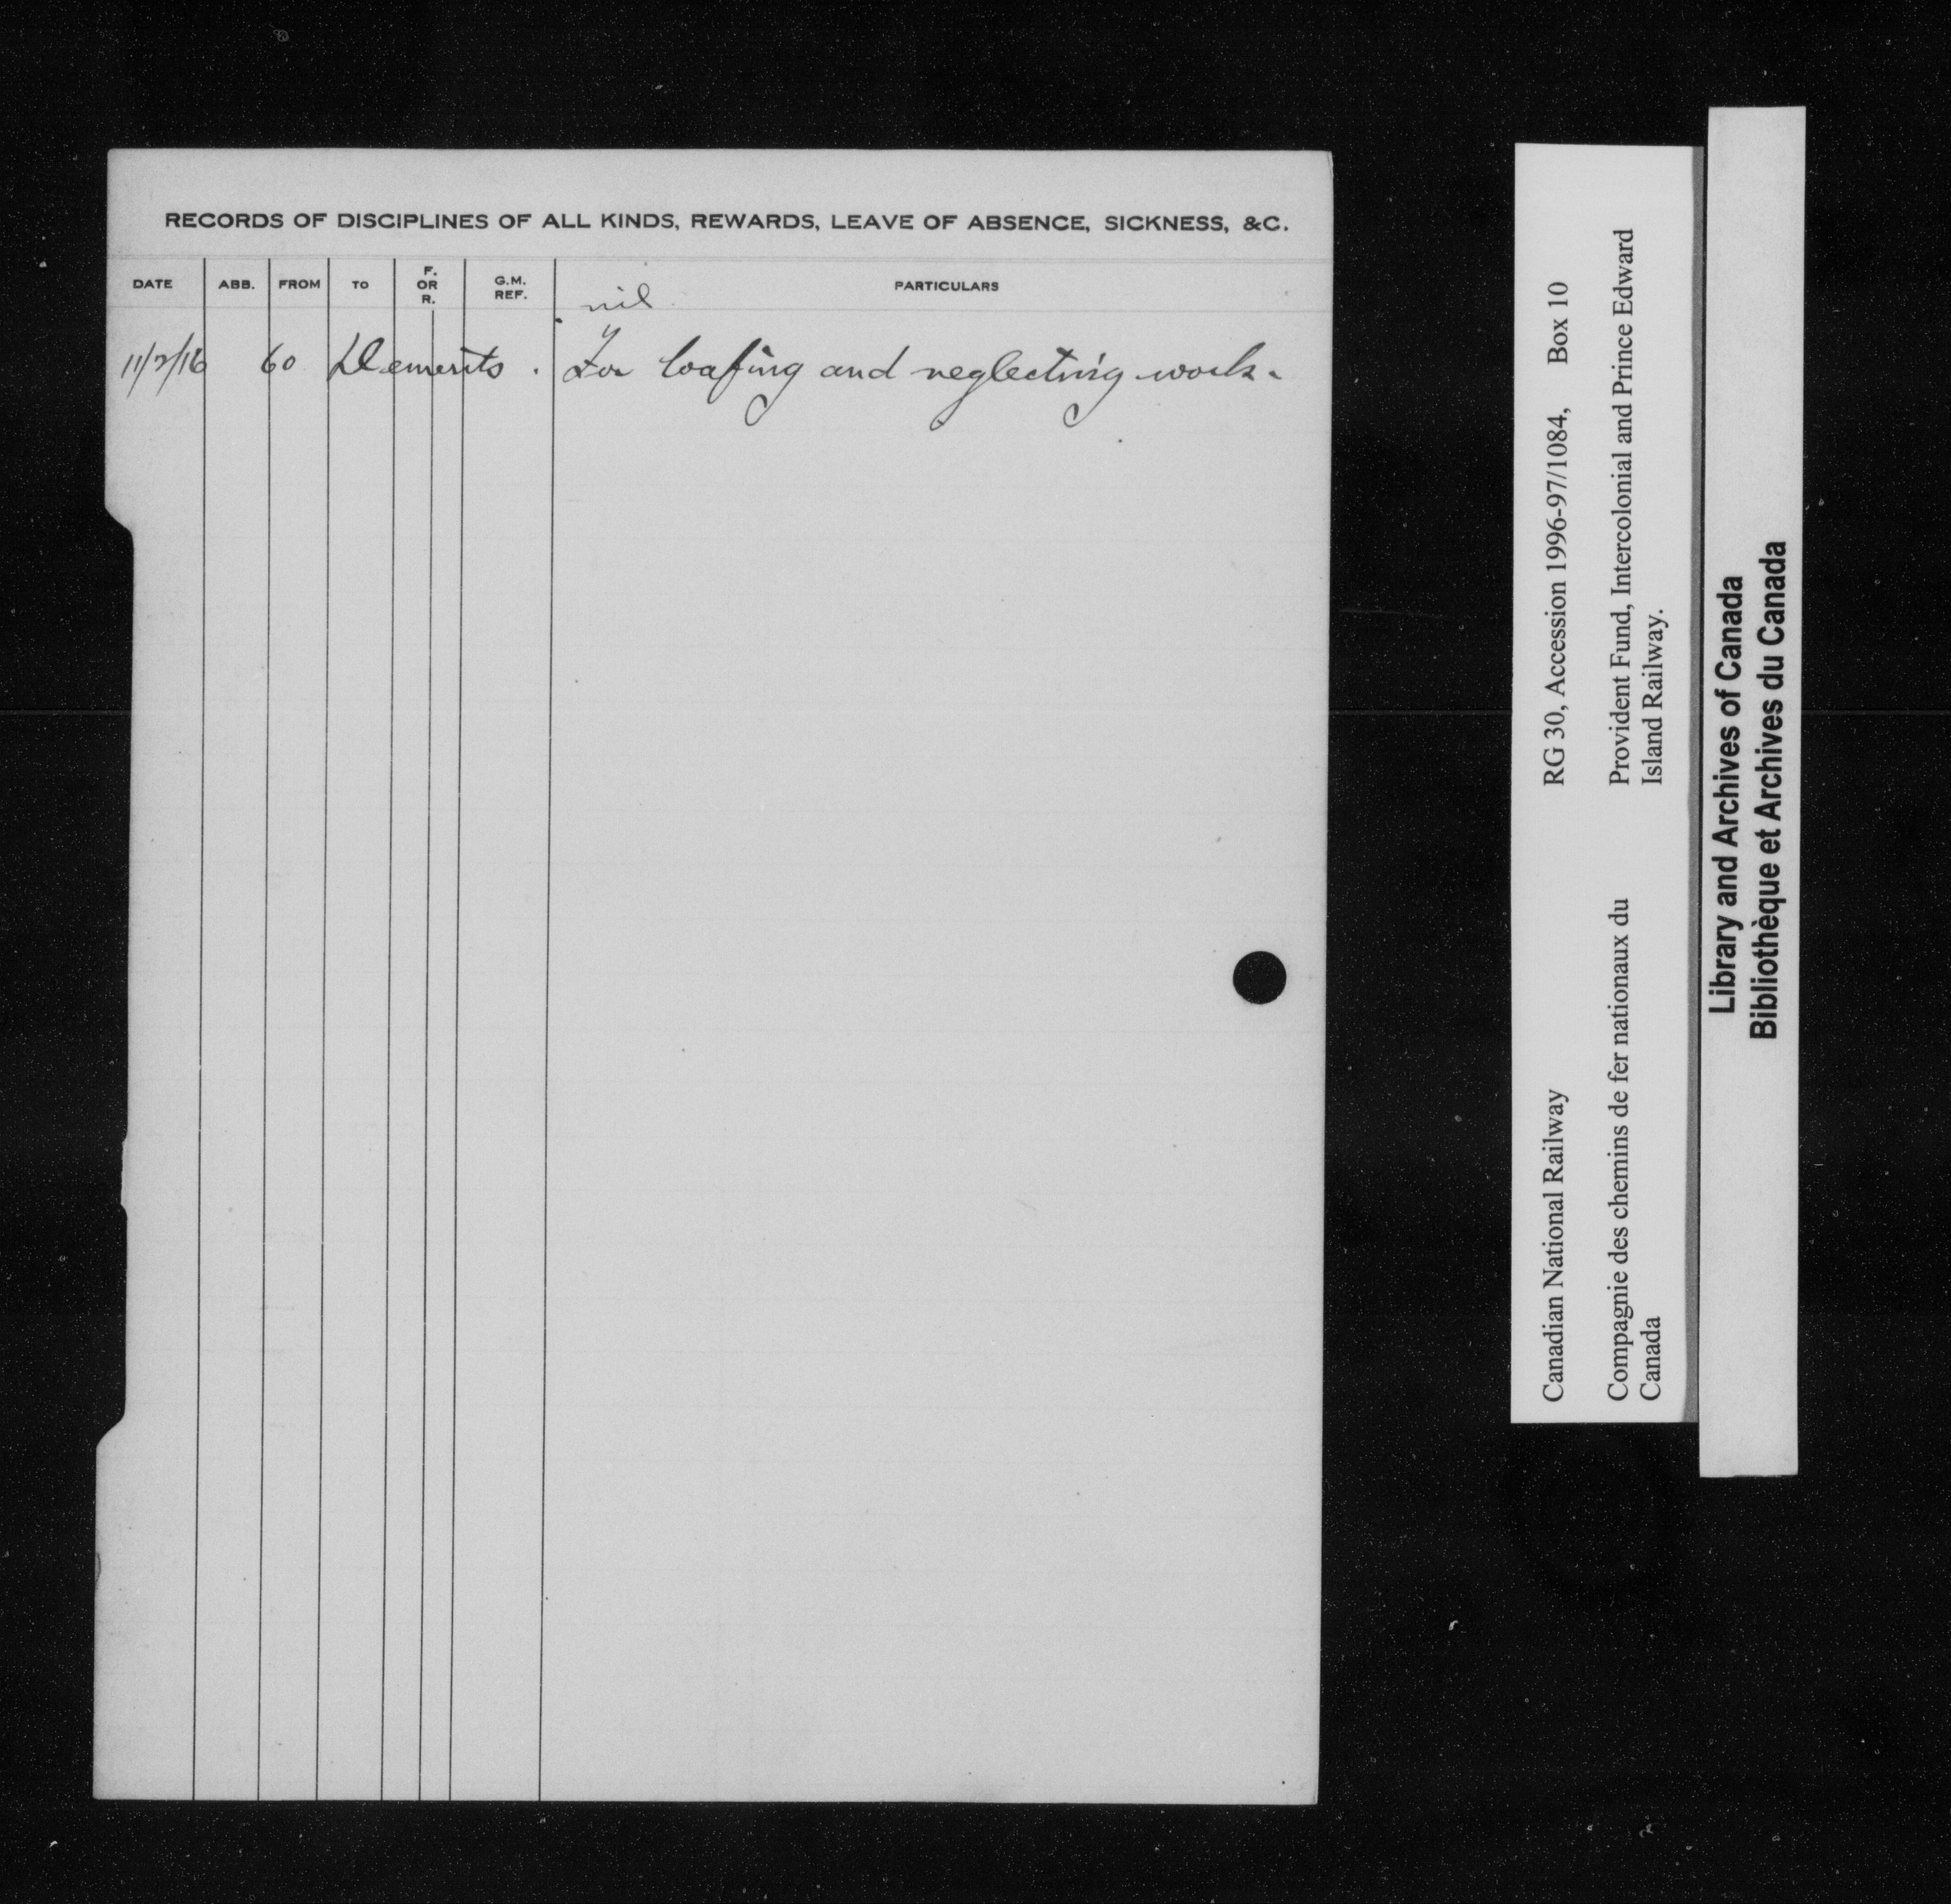 RECORDS OF DISCIPLINES OF ALL KINDS, REWARDS, LEAVE OF ABSENCE, SICKNESS, &C.
DATE ABB. FROM TO F. OR R. G.M. REF. PARTICULARS
nil
11/2/16 60 Demerits. For loafing and neglecting work.
Canadian National Railway RG 30, Accession 1996-97/1084, Box 10
Compagnie des chemins de fer nationaux du Provident Fund, Intercolonial and Prince Edward
Canada Island Railway.
Library and Archives of Canada
Bibliothèque et Archives du Canada